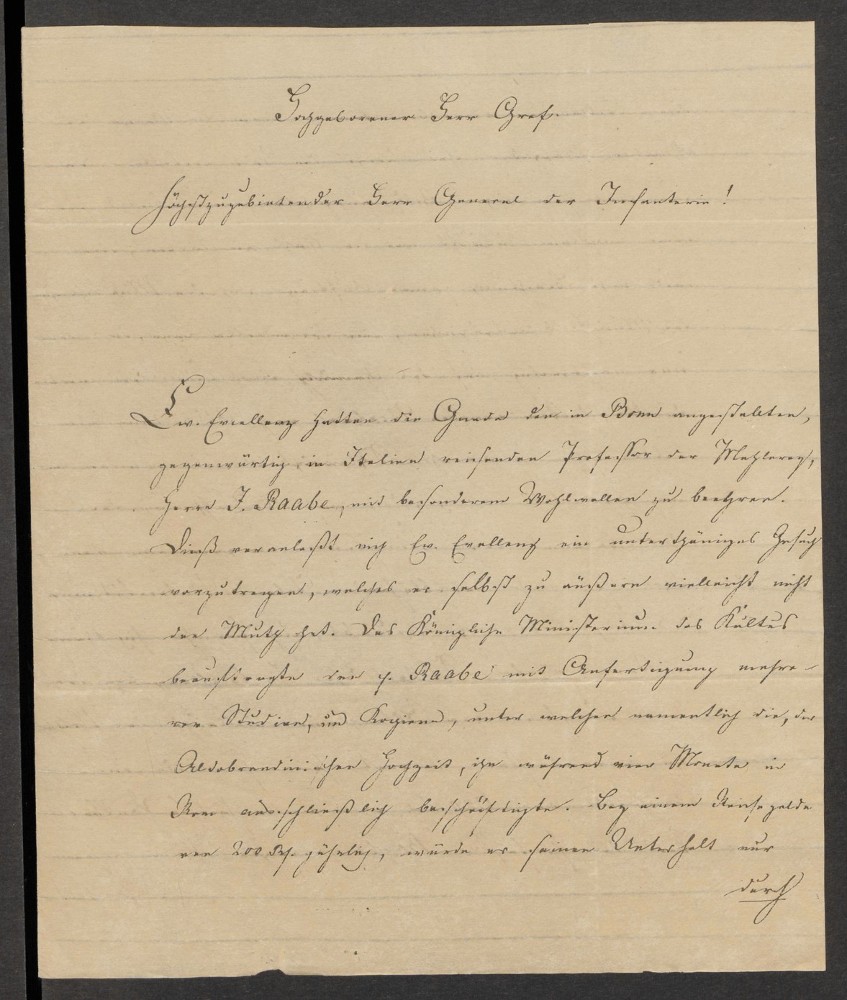 Hochgeborener Herr Graf.
Höchstzugebietender Herr General der Infanterie!
Ew. Excellenz hatten die Gnade den in Bonn angestellten,
gegenwärtig in Italien reisenden Professor der Mahlerey,
Herrn J. Raabe, mit besonderem Wohlwollen zu beehren.
Dieß veranlaßt mich Ew. Exellenz ein unterthäniges Gesuch
vorzutragen, welches er selbst zu äußern vielleicht nicht
den Muth hat. Das Königliche Ministerium des Kultus
beauftragte den p. Raabe mit Anfertigung mehre-
rer Studien, und Kopieen, unter welchen namentlich die, der
Aldobrandinischen Hochzeit, ihn während vier Monate in
Rom ausschließlich beschäftigte. Bey einem Reisegelde
von 200 jährlich, würde er seinen Unterhalt nur
durch